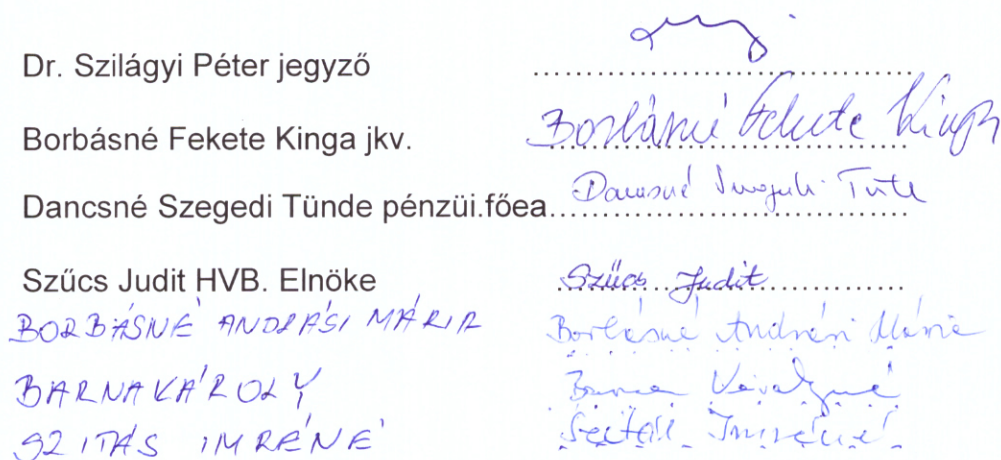 Dr. Szilágyi Péter jegyző ........................................
Borbásné Fekete Kinga jkv. Borbásné Fekete Kinga
Dancsné Szegedi Tünde pénzüi.főea. Dancsné Szegedi Tünde
Szűcs Judit HVB. Elnöke Szűcs Judit
BORBÁSNÉ ANDRÁSI MÁRIA Borbásné Andrási Mária
BARNA KÁROLY Barna Károlyné
SZITÁS IMRÉNÉ Szitás Imréné